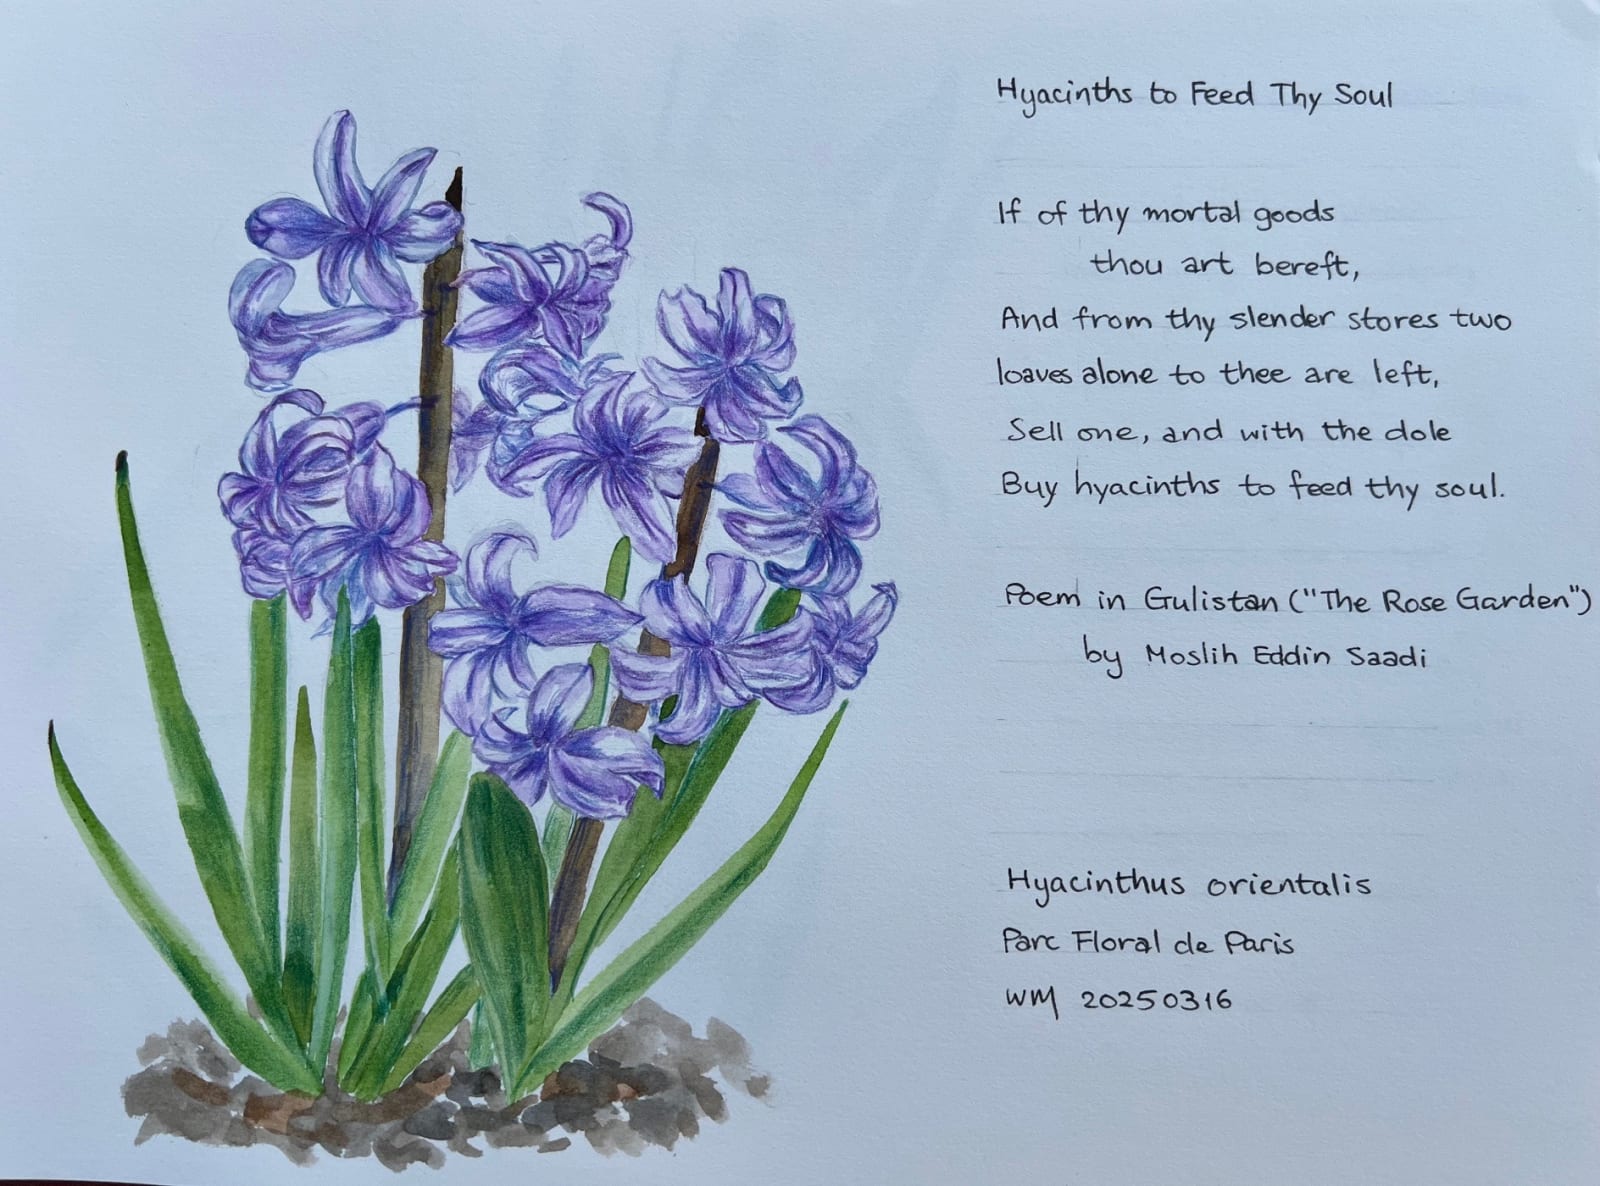 Hyacinths to Feed Thy Soul
If of thy mortal goods
thou art bereft,
And from thy slender stores two
loaves alone to thee are left,
Sell one, and with the dole
Buy hyacinths to feed thy soul.
Poem in Gulistan ("The Rose Garden")
by Moslih Eddin Saadi
Hyacinthus orientalis
Parc Floral de Paris
WM 20250316